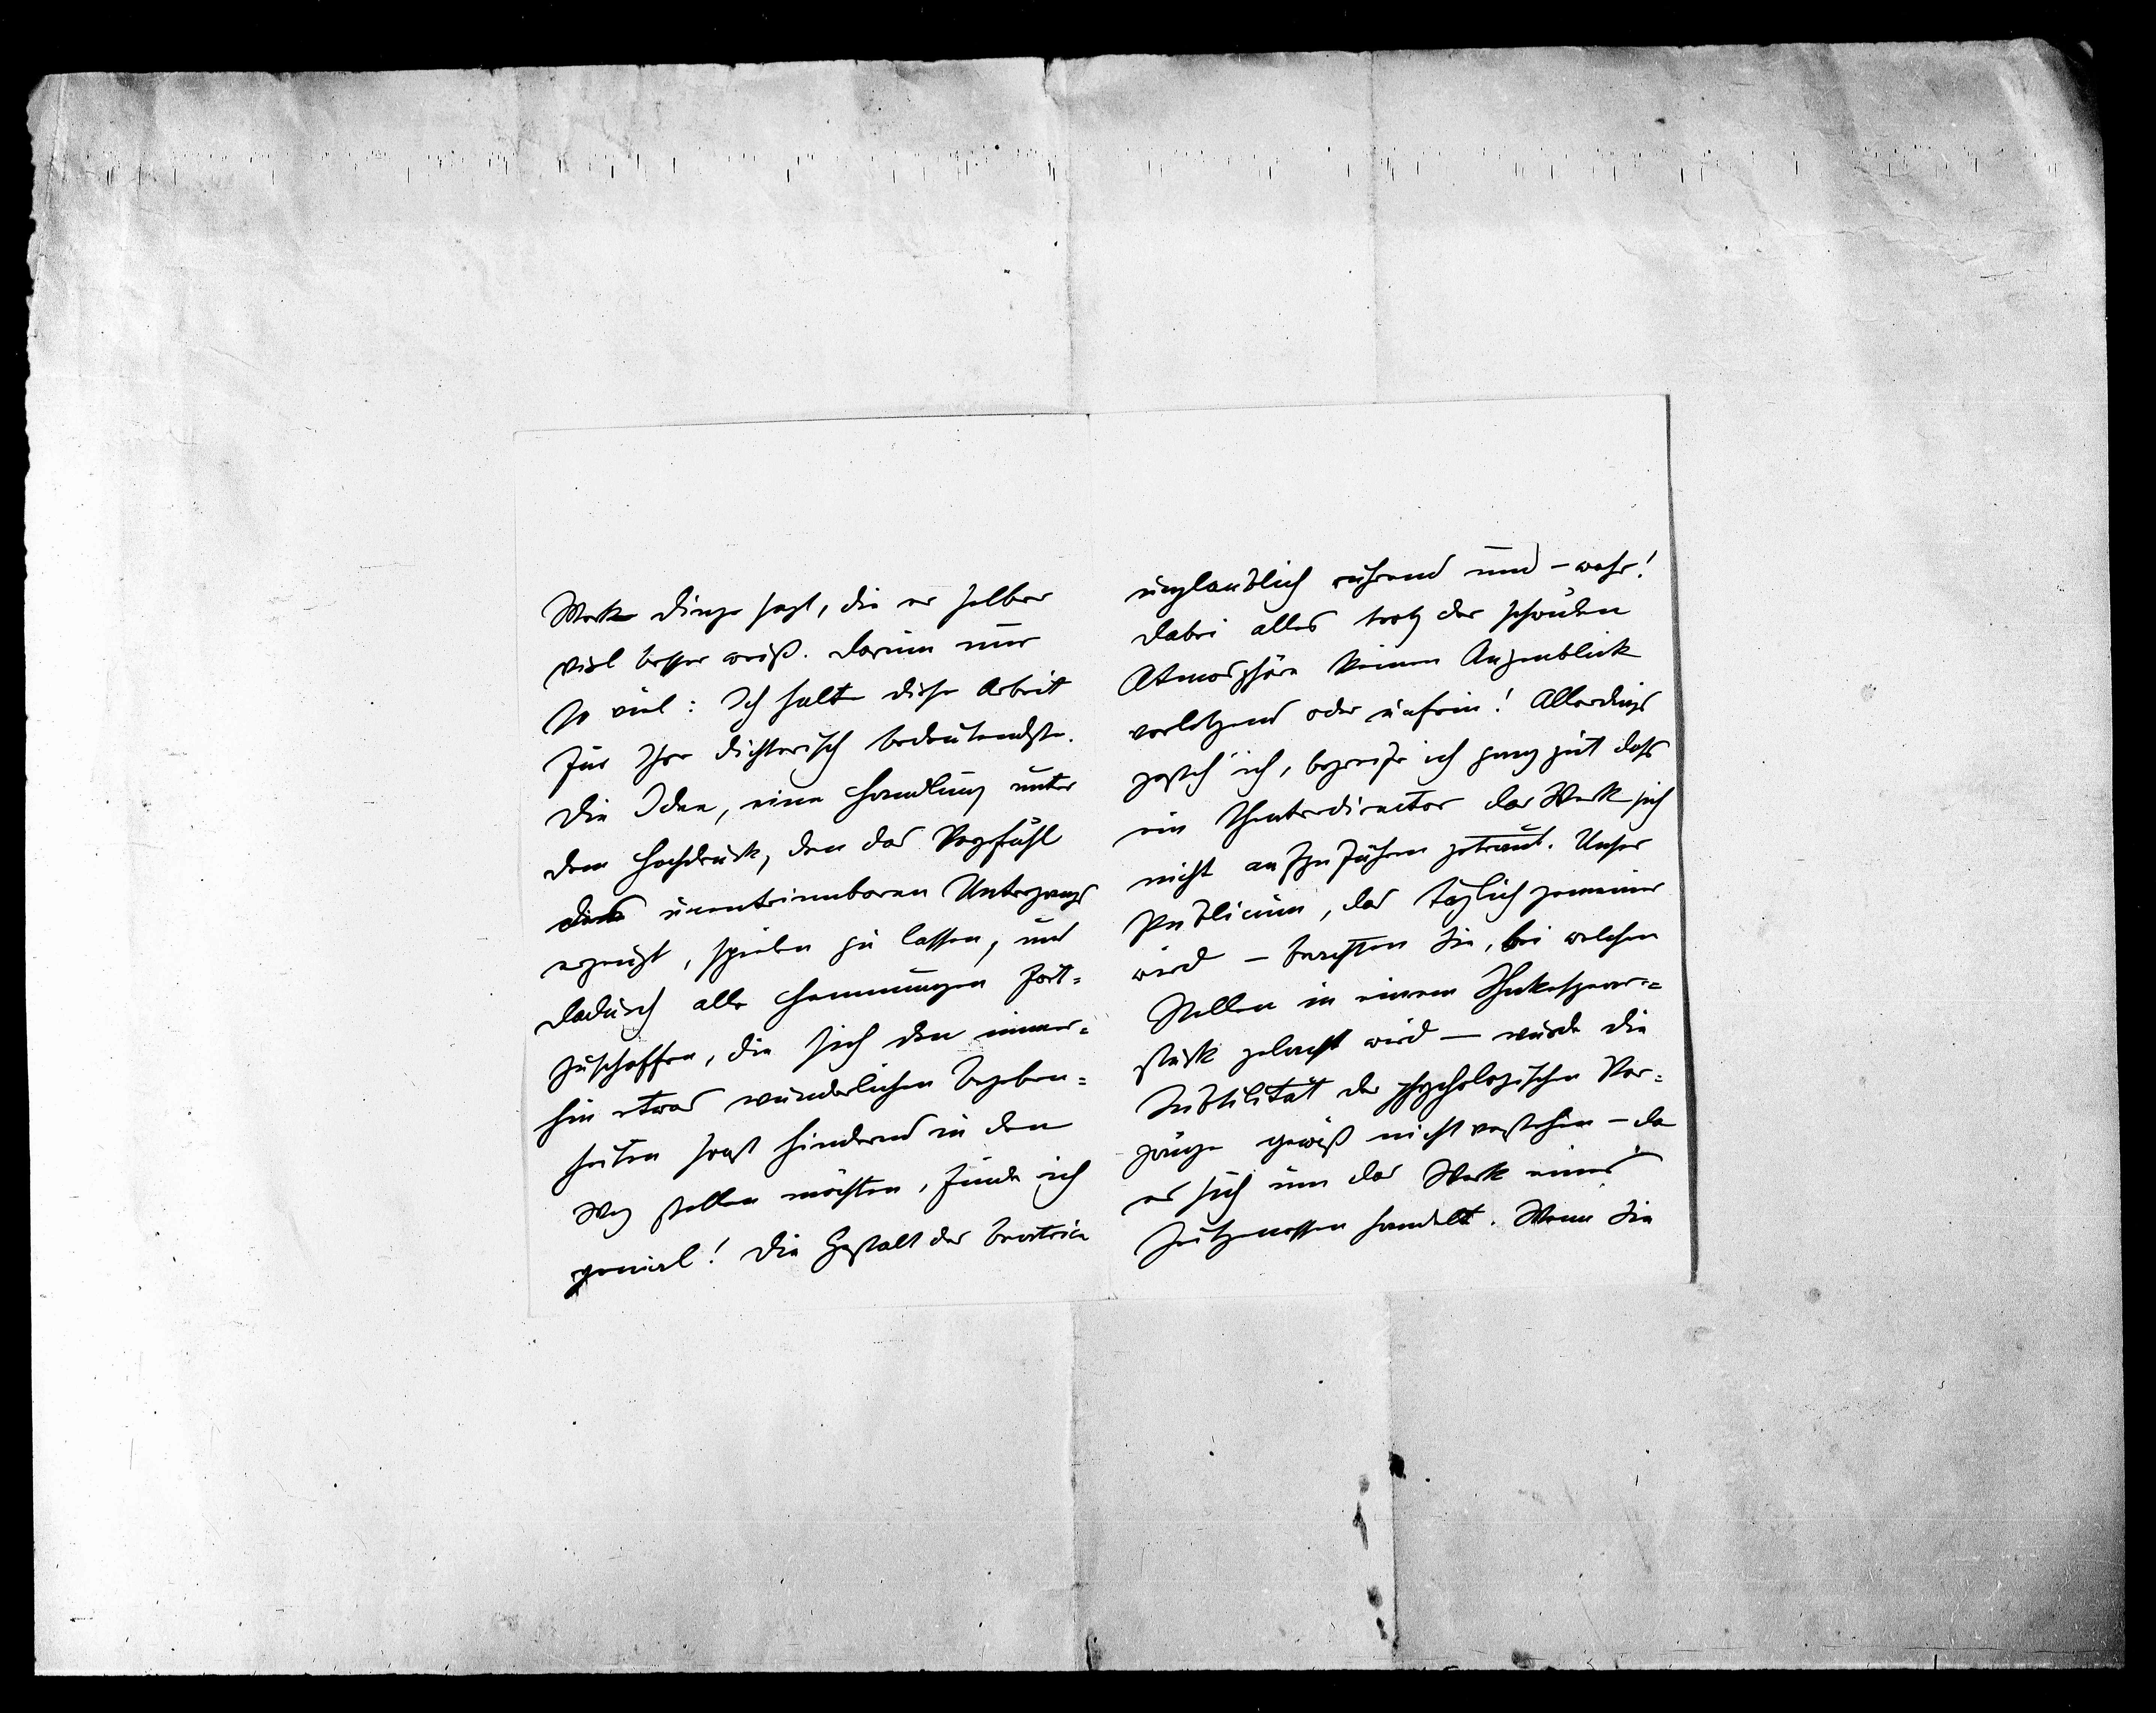 Werke Dinge sagt, die er selber
viel besser weiß. Darum nur
so viel: Ich halte diese Arbeit
für Ihre dichterisch bedeutendste.
Die Idee, eine Handlung unter
dem Hochdruck, den das Vorgefühl
des unentrinnbaren Untergangs
erzeugt, spielen zu lassen, und
dadurch alle Hemmungen fort-
zuschaffen, die sich den immer-
hin etwas wunderlichen Begeben-
heiten sonst hindernd in den
Weg stellen möchten, finde ich
genial! Die Gestalt der Beatrice
unglaublich rührend und – wahr!
Dabei alles trotz der schwülen
Atmosphäre keinen Augenblick
verletzend oder unfein! Allerdings
gesteh' ich, begreife ich ganz gut dass
ein Theaterdirector das Werk sich
nicht aufzuführen getraut. Unser
Publicum, das täglich gemeiner
wird – beachten Sie, bei welchen
Stellen in einem Shakespeare-
stück gelacht wird – würde die
Subtilität der psychologischen Vor-
gänge gewiß nicht verstehen – da
es sich um das Werk eines
Zeitgenossen handelt. Wenn Sie